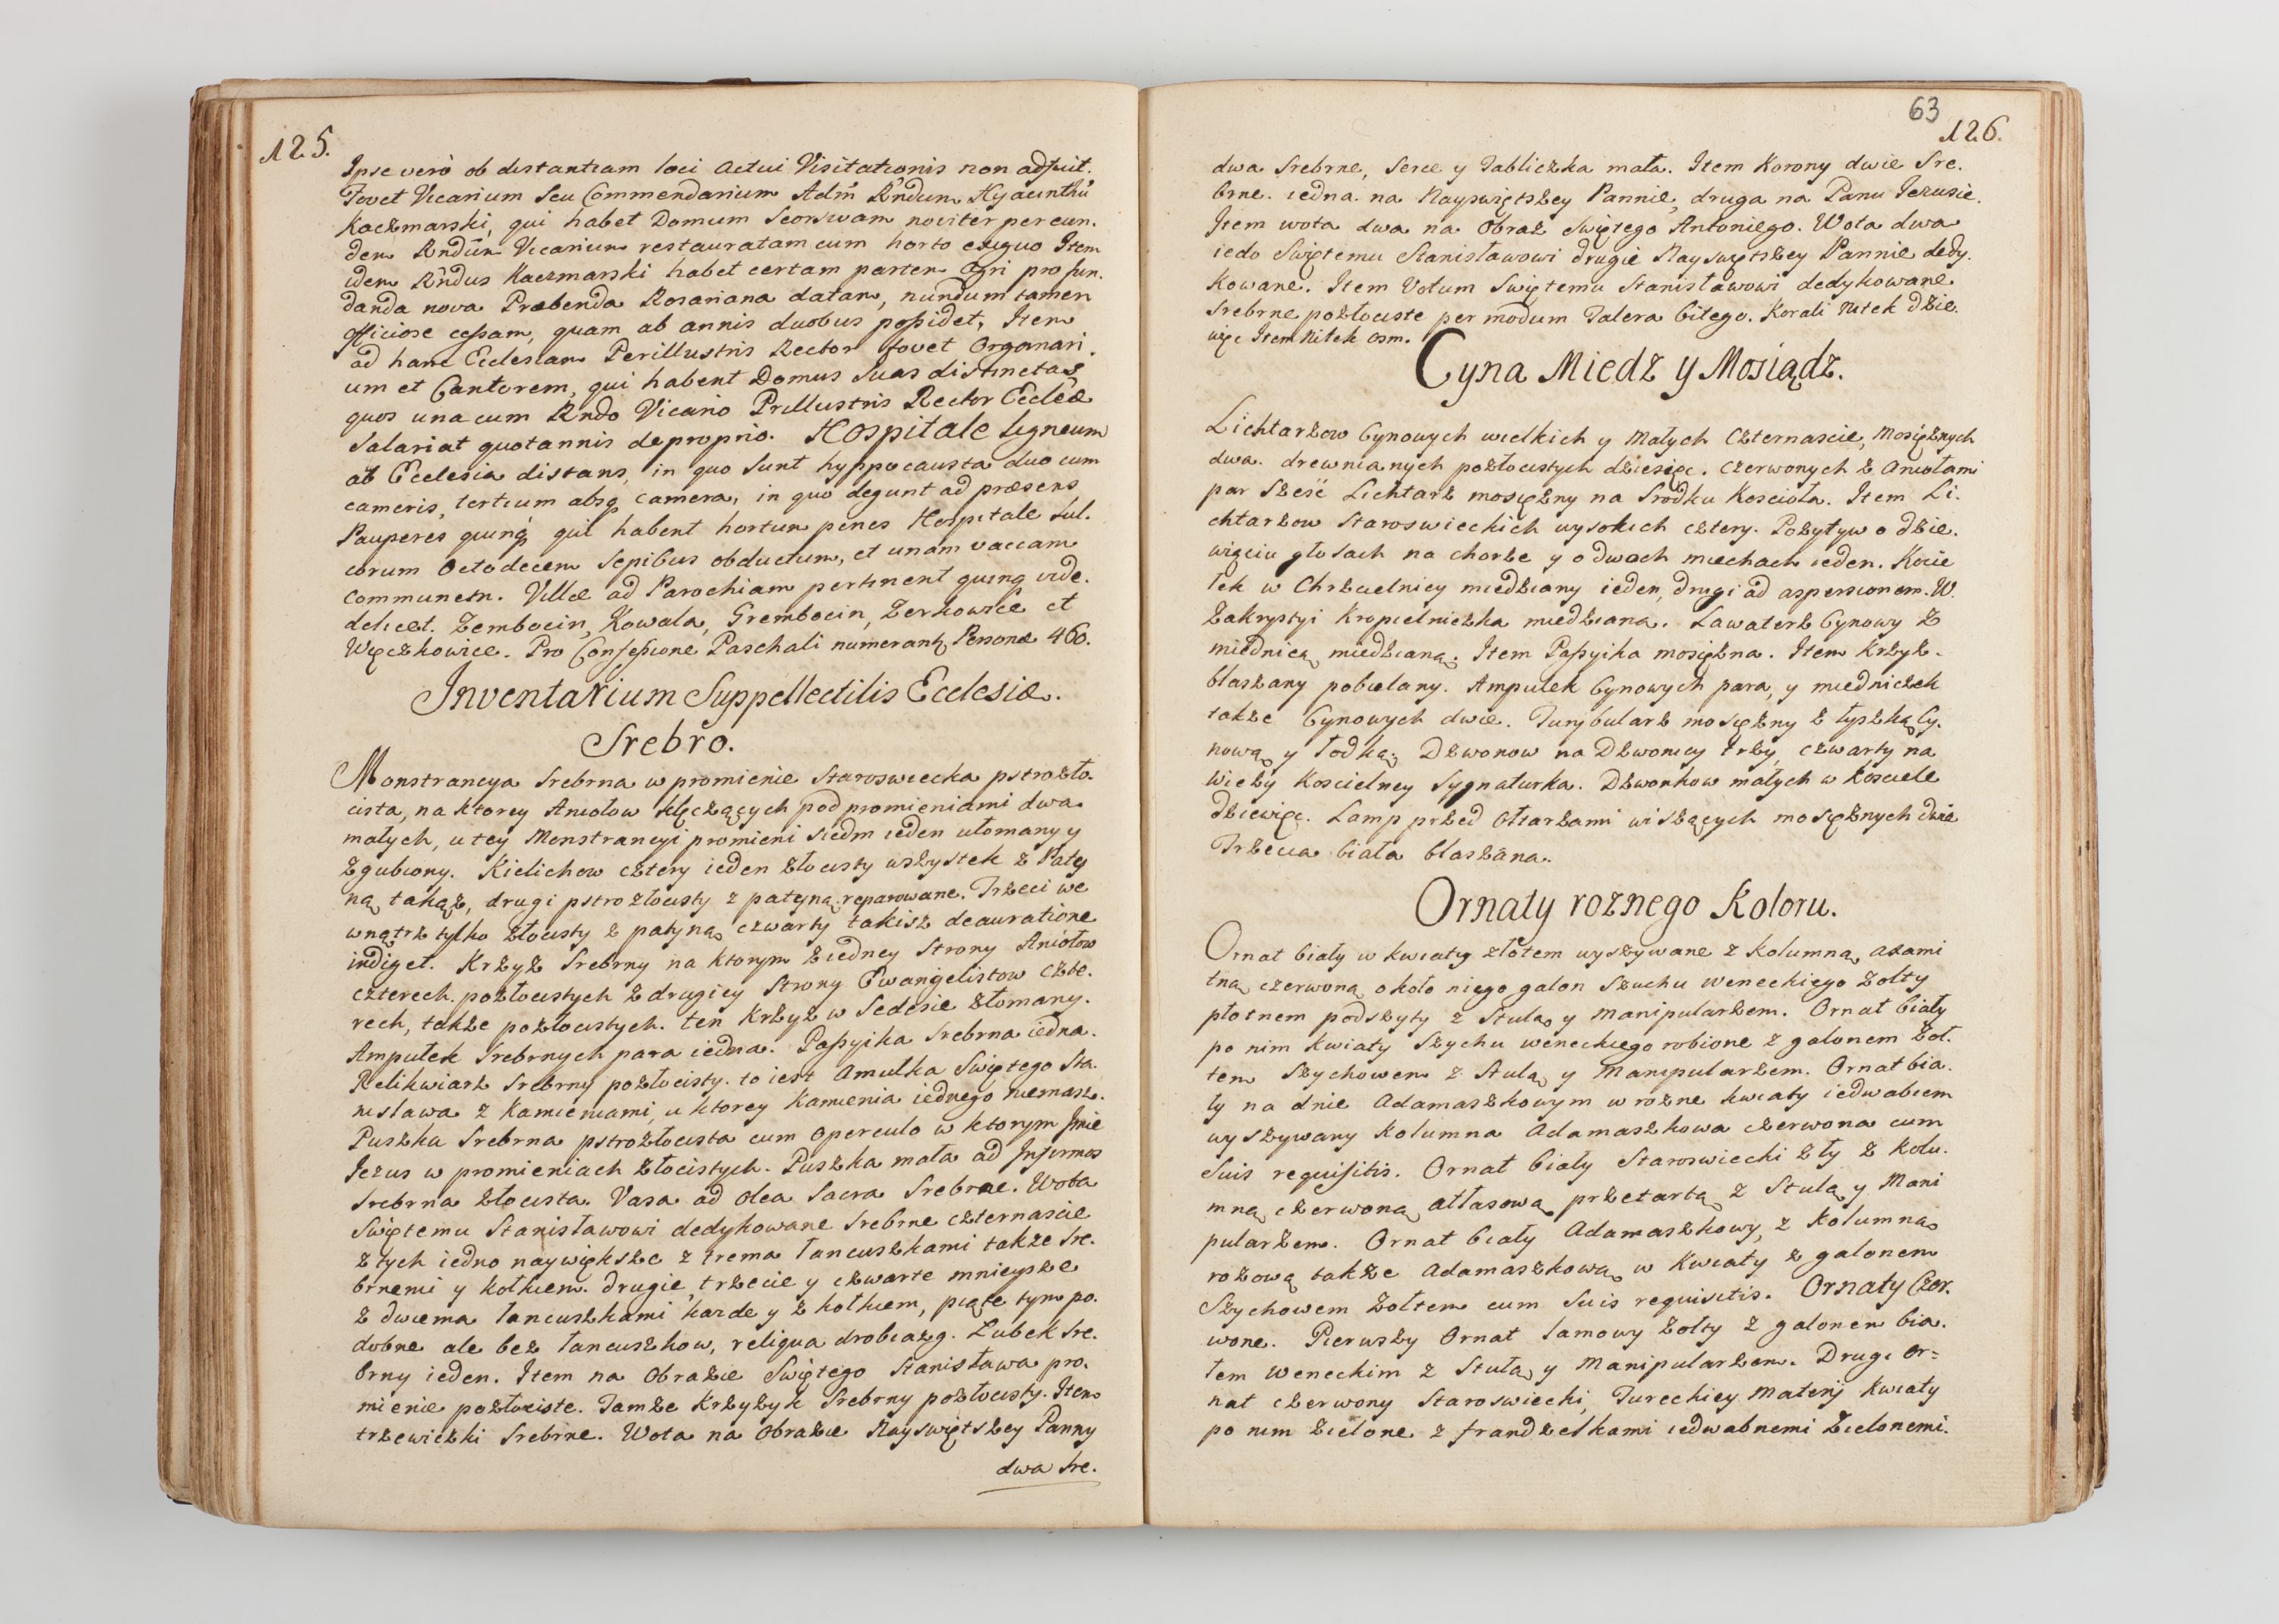 125.
Ipse verò ob distantiam loci actui Visitationis non adfuit.
Fovet Vicarium seu Commendarium Adm̃ Rñdum Hyacinthũ
Kaczmarski, qui habet Domum seorsivam noviter per eun.
dem Rndũm Vicarium restauratam cum horto exiguo Item
idem Rñdus Kaczmarski habet certam partem agri pro fun.
danda nova Præbenda Rosariana datam, nundum tamen
officiose cessam, quam ab annis duobus possidet, Item
ad hanc Ecclesiam Perillustris Rector fovet Organari.
um et Cantorem, qui habent Domus suas distinctas
quos una cum Rndo Vicario Prillustris Rector Ecclẽæ
Salariat quotannis de proprio. Hospitale ligneum
ab Ecclesia distans, in quo sunt hyppocausta duo cum
cameris, tertium absq camera, in quo degunt ad præsens
Pauperes quinq́ qui habent hortum penes Hospitale sul.
corum Octodecem sepibus obductum, et unam vaccam
communem. Villæ ad Parochiam pertinent quinq vide.
delicet. Zembocin, Kowala, Grembocin, Zerkowice et
Więczkowice. Pro Confessione Paschali numerantꝫ Personæ 460.
Inventarium Suppellectilis Ecclesiæ.
Srebro.
Monstrancya Srebrna w promienie Staroswiecka pstrozło.
cista, na ktorey Aniołow klęczących pod promieniami dwa
małych, u tey Monstrancyi promieni siedm ieden ułomany y
zgubiony. Kielichow cztery ieden złocisty wszystek z Paty
ną takąz, drugi pstrozłocisty z patyną reparowane. Trzeci we
wnątrz tylko złocisty z patyną czwarty takisz deauratione
indiget. Krzyz Srebrny na ktorym z iedney Strony Aniołow
czterech pozłocistych z drugiey Strony Ewangelistow czte.
rech, takze pozłocistych. ten Krzyz w Sedesie złomany.
Ampułek Srebrnych para iedna. Passyika Srebrna iedna.
Relikwiarz Srebrny pozłocisty to iest Amułka Swiętego Sta.
nisława z Kamieniami, u ktorey Kamienia iednego niemasz.
Puszka Srebrna pstrozłocista cum operculo w ktorym Jmie
Jezus w promieniach złocistych. Puszka mała ad Infirmos
Srebrna złocista. Vasa ad olea Sacra Srebrne. Wota
Swiętemu Stanisławowi dedykowane Srebrne czternascie
z tych iedno naywiększe z trema łancuszkami takze Sre.
brnemi y kołkiem. drugie, trzecie y czwarte mnieysze
z dwiema łancuszkami kazde y z kołkiem, piąte tym po.
dobne ale bez łancuszkow, reliqua drobiazg. Zubek Sre.
brny ieden. Item na Obrazie Swiętego Stanisława pro.
mienie pozłociste. Tamze Krzyzyk Srebrny pozłocisty. Item
trzewiczki Srebrne. Wota na Obrazie Nayswiętszey Panny
dwa Sre.
63
126.
dwa Srebrne, Serce y Tabliczka mała. Item Korony dwie Sre.
brne. iedna na Nayswiętszey Pannie, druga na Panu Jezusie.
Item wota dwa na Obraz Swiętego Antoniego. Wota dwa
iedo Swiętemu Stanisławowi drugie Nayswiętszey Pannie dedy.
kowane. Item Votum Swiętemu Stanisławowi dedykowane
Srebrne pozłociste per modum Talera bitego. Korali Nitek dzie.
więc Item Nitek osm.
Cyna Miedz y Mosiądz.
Lichtarzow Cynowych wielkich y Małych Czternascie, Mosięznych
dwa. drewnianych pozłocistych dziesięc. czerwonych z Aniołami
par Szesć Lichtarz mosięzny na Srodku Koscioła. Item Li.
chtarzow Staroswieckich wysokich cztery. Pozytyw o dzie.
więciu głosach na chorze y o dwoch miechach ieden. Kocie
łek w Chrzcielnicy miedziany ieden, drugi ad aspersionem. W
Zakrystyi Kropielniczka miedziana. Lawaterz Cynowy z
miednicą miedzianą. Item Passyika mosięzna. Item Krzyz
blaszany pobielany. Ampułek Cynowych para, y miedniczek
takze Cynowych dwie. Turybularz mosięzny z łyszką Cy.
nową y łodką. Dzwonow na Dzwonicy trzy, czwarty na
Wiezy Koscielney Sygnaturka. Dzwonkow małych w Kosciele
dziewięc. Lamp przed Ołtarzami wiszących mosięznych dwie
Trzecia biała blaszana.
Ornaty roznego Koloru.
Ornat biały w kwiaty złotem wyszywane z kolumną axami
tną czerwoną około niego galon Szuchu weneckiego zołty
płotnem podszyty z Stułą y manipularzem. Ornat biały
po nim kwiaty Szychu weneckiego robione z galonem zoł.
tem Szychowem z Stułą y Manipularzem. Ornat bia.
ły na dnie Adamaszkowym w rozne kwiaty iedwabiem
wyszywany kolumna Adamaszkowa czerwona cum
suis requisitis. Ornat biały Staroswiecki zły z kolu.
mną czerwoną atłasową przetartą z Stułą y Mani
pularzem. Ornat biały Adamaszkowy, z kolumną
rozową takze Adamaszkową w kwiaty z galonem
Szychowem zołtem cum suis requisitis. Ornaty Czer.
wone. Pierwszy Ornat lamowy zołty z galonem bia.
łem weneckim z Stułą y Manipularzem. Drugi Or=
nat czerwony Staroswiecki, Tureckiey materij kwiaty
po nim zielone z frandzelkami iedwabnemi zielonemi.